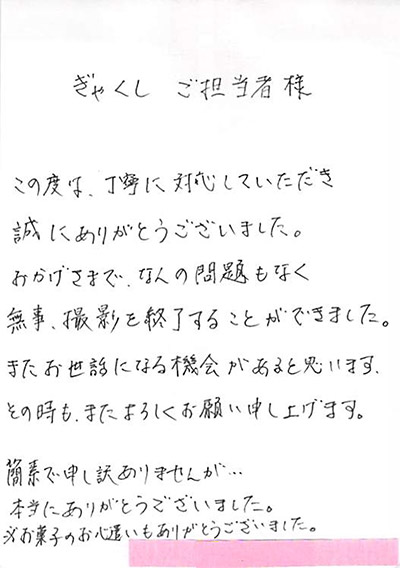 ぎゃくし ご担当者様
この度は、丁寧に対応していただき
誠にありがとうございました。
おかげさまで、なんの問題もなく
無事、撮影を終了することができました。
またお世話になる機会があると思います、
その時も、またよろしくお願い申し上げます。
簡素で申し訳ありませんが…
本当にありがとうございました。
※お菓子のお心遣いもありがとうございました。